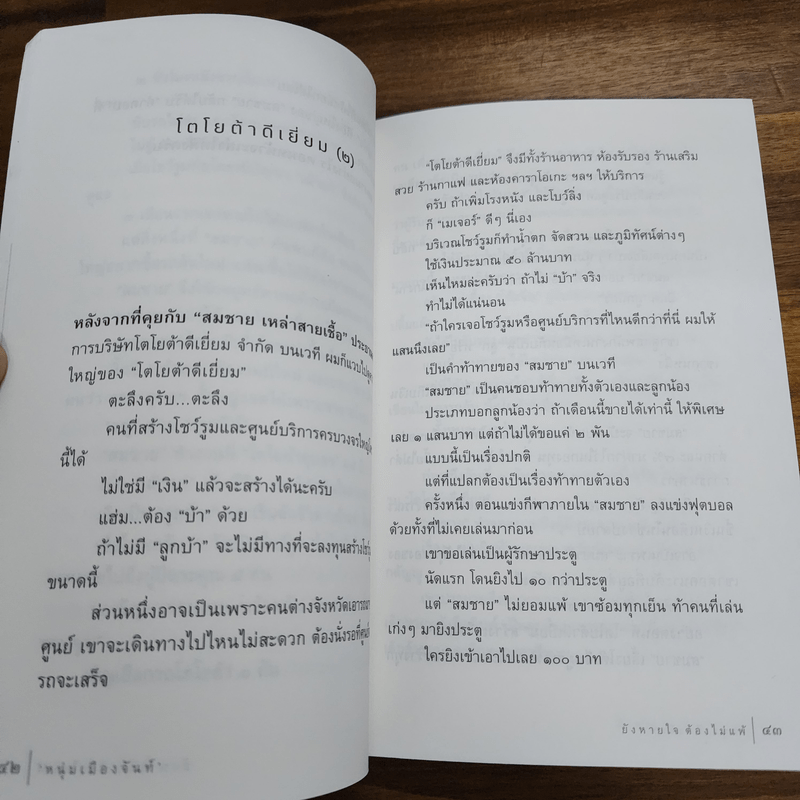 โตโยต้าดีเยี่ยม (๒)
หลังจากที่คุยกับ "สมชาย เหล่าสายเชื้อ"
การบริษัทโตโยต้าดีเยี่ยม จำกัด บนเวที ผมก็แวบไป
ใหญ่ของ "โตโยต้าดีเยี่ยม"
ตะลึงครับ...ตะลึง
คนที่สร้างโชว์รูมและศูนย์บริการครบวงจร
นี้ได้
ไม่ใช่มี "เงิน" แล้วจะสร้างได้นะครับ
แฮ่ม...ต้อง "บ้า" ด้วย
ถ้าไม่มี "ลูกบ้า" จะไม่มีทางที่จะลงทุนสร้าง
ขนาดนี้
ส่วนหนึ่งอาจเป็นเพราะคนต่างจังหวัดเอารถมา
ศูนย์ เขาจะเดินทางไปไหนไม่สะดวก ต้องนั่งรอที่
รถจะเสร็จ
๔๒ "หนุ่มเมืองจันท์"
"โตโยต้าดีเยี่ยม" จึงมีทั้งร้านอาหาร ห้องรับรอง ร้านเสริม
สวย ร้านกาแฟ และห้องคาราโอเกะ ฯลฯ ให้บริการ
ครับ ถ้าเพิ่มโรงหนัง และโบว์ลิ่ง
ก็ "เมเจอร์" ดีๆ นี่เอง
บริเวณโชว์รูมก็ทำน้ำตก จัดสวน และภูมิทัศน์ต่างๆ
ใช้เงินประมาณ ๕๐ ล้านบาท
เห็นไหมล่ะครับว่า ถ้าไม่ "บ้า" จริง
ทำไม่ได้แน่นอน
"ถ้าใครเจอโชว์รูมหรือศูนย์บริการที่ไหนดีกว่าที่นี่ ผมให้
แสนนึงเลย"
เป็นคำท้าทายของ "สมชาย" บนเวที
"สมชาย" เป็นคนชอบท้าทายทั้งตัวเองและลูกน้อง
ประเภทบอกลูกน้องว่า ถ้าเดือนนี้ขายได้เท่านี้ ให้พิเศษ
เลย ๑ แสนบาท แต่ถ้าไม่ได้ขอแค่ ๒ พัน
แบบนี้เป็นเรื่องปกติ
แต่ที่แปลกต้องเป็นเรื่องท้าทายตัวเอง
ครั้งหนึ่ง ตอนแข่งกีฬาภายใน "สมชาย" ลงแข่งฟุตบอล
ด้วยทั้งที่ไม่เคยเล่นมาก่อน
เขาขอเล่นเป็นผู้รักษาประตู
นัดแรก โดนยิงไป ๑๐ กว่าประตู
แต่ "สมชาย" ไม่ยอมแพ้ เขาซ้อมทุกเย็น ท้าคนที่เล่น
เก่งๆ มายิงประตู
ใครยิงเข้าเอาไปเลย ๑๐๐ บาท
ยังหายใจ ต้องไม่แพ้ ๔๓